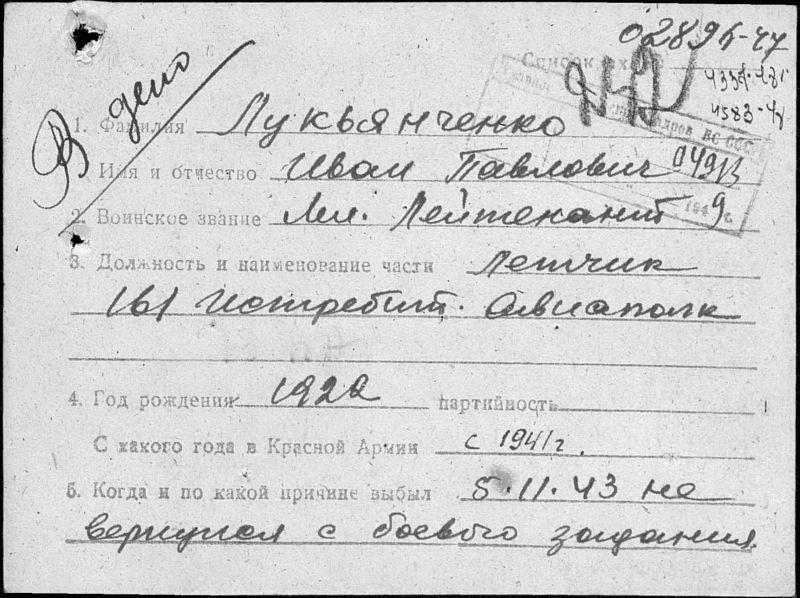 02896-47
Список
4583-44
В дело
1. Фамилия Лукьянченко
Имя и отчество Иван Павлович
2. Воинское звание Мл. Лейтенант
3. Должность и наименование части Летчик
161 Истребит. Авиаполк
4. Год рождения 1920 партийность
С какого года в Красной Армии с 1941 г.
5. Когда и по какой причине выбыл 5.11.43 не
вернулся с боевого задания.